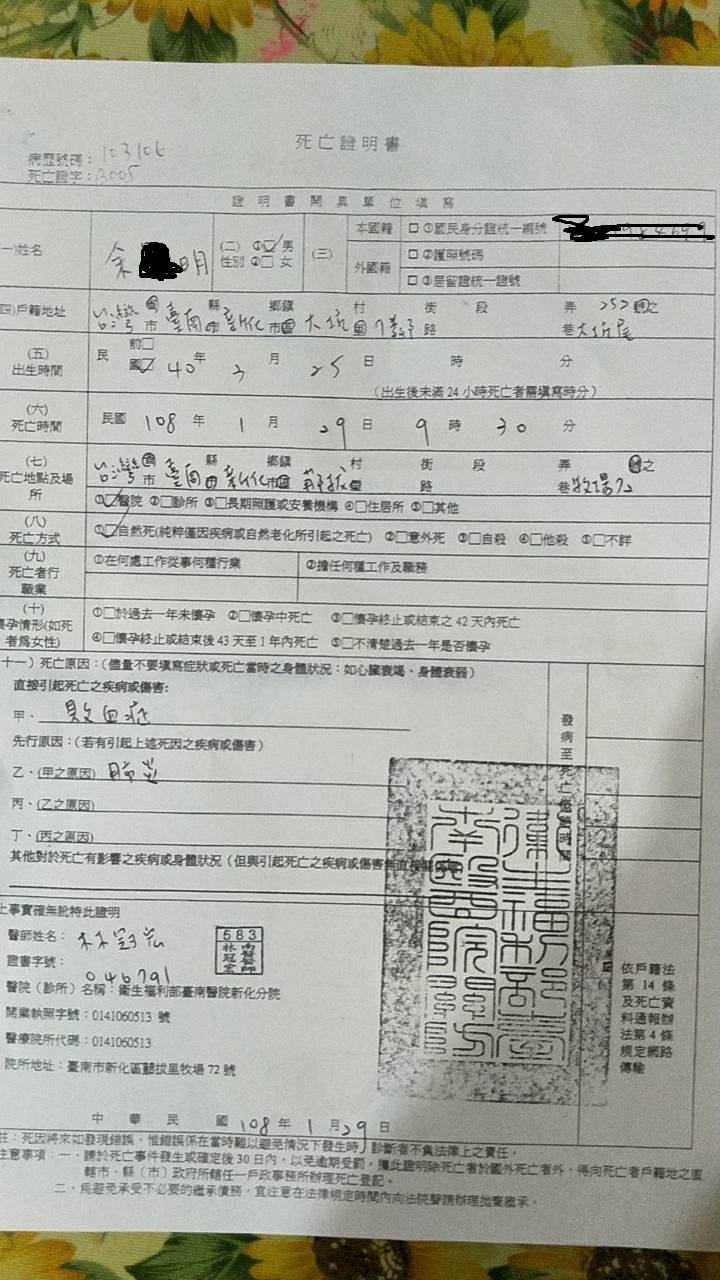 死亡證明書
病歷號碼：103106
死亡證字：B005
證明書開具單位填寫
(一)姓名 余 明 (二)性別 ①☑男 ②□女 (三) 本國籍 □①國民身分證統一編號
外國籍 □②護照號碼
□③居留證統一證號
(四)戶籍地址 台灣 市 臺南 縣市 新化 鄉鎮市區 大坑 村里 鄰 街路 段 巷 弄 252 號之 大坑尾
(五)出生時間 民 前□ 國☑ 40 年 3 月 25 日 時 分
(出生後未滿 24 小時死亡者需填寫時分)
(六)死亡時間 民國 108 年 1 月 29 日 9 時 30 分
(七)死亡地點及場所 台灣 市 臺南 縣市 新化 鄉鎮市區 村里 街路 段 巷 弄 號之 牧場72
①☑醫院 ②□診所 ③□長期照護或安養機構 ④□住居所 ⑤□其他
(八)死亡方式 ①☑自然死(純粹僅因疾病或自然老化所引起之死亡) ②□意外死 ③□自殺 ④□他殺 ⑤□不詳
(九)死亡者行職業 ①在何處工作從事何種行業 ②擔任何種工作及職務
(十)懷孕情形(如死者為女性) ①□於過去一年未懷孕 ②□懷孕中死亡 ③□懷孕終止或結束之 42 天內死亡
④□懷孕終止或結束後 43 天至 1 年內死亡 ⑤□不清楚過去一年是否懷孕
(十一) 死亡原因：(儘量不要填寫症狀或死亡當時之身體狀況：如心臟衰竭、身體衰弱)
直接引起死亡之疾病或傷害:
甲、 敗血症
先行原因：(若有引起上述死因之疾病或傷害)
乙、(甲之原因) 肺炎
丙、(乙之原因)
丁、(丙之原因)
其他對於死亡有影響之疾病或身體狀況 (但與引起死亡之疾病或傷害無直接關係者)
發病至死亡之概略時間
上事實確無訛特此證明
醫師姓名： 林冠宏
583
林冠宏
南醫醫師
證書字號： 046791
醫院 (診所) 名稱：衛生福利部臺南醫院新化分院
開業執照字號：0141060513 號
醫療院所代碼：0141060513
院所地址：臺南市新化區𦰡拔里牧場 72 號
依戶籍法
第 14 條
及死亡資
料通報辦
法第 4 條
規定網路
傳輸
中華民國 108 年 1 月 29 日
註：死因將來如發現錯誤，惟錯誤係在當時難以避免情況下發生時，診斷者不負法律上之責任。
注意事項：一、請於死亡事件發生或確定後 30 日內，以免逾期受罰，攜此證明除死亡者於國外死亡者外，得向死亡者戶籍地之直
轄市、縣（市）政府所轄任一戶政事務所辦理死亡登記。
二、為避免承受不必要的繼承債務，宜注意在法律規定時間內向法院聲請辦理拋棄繼承。